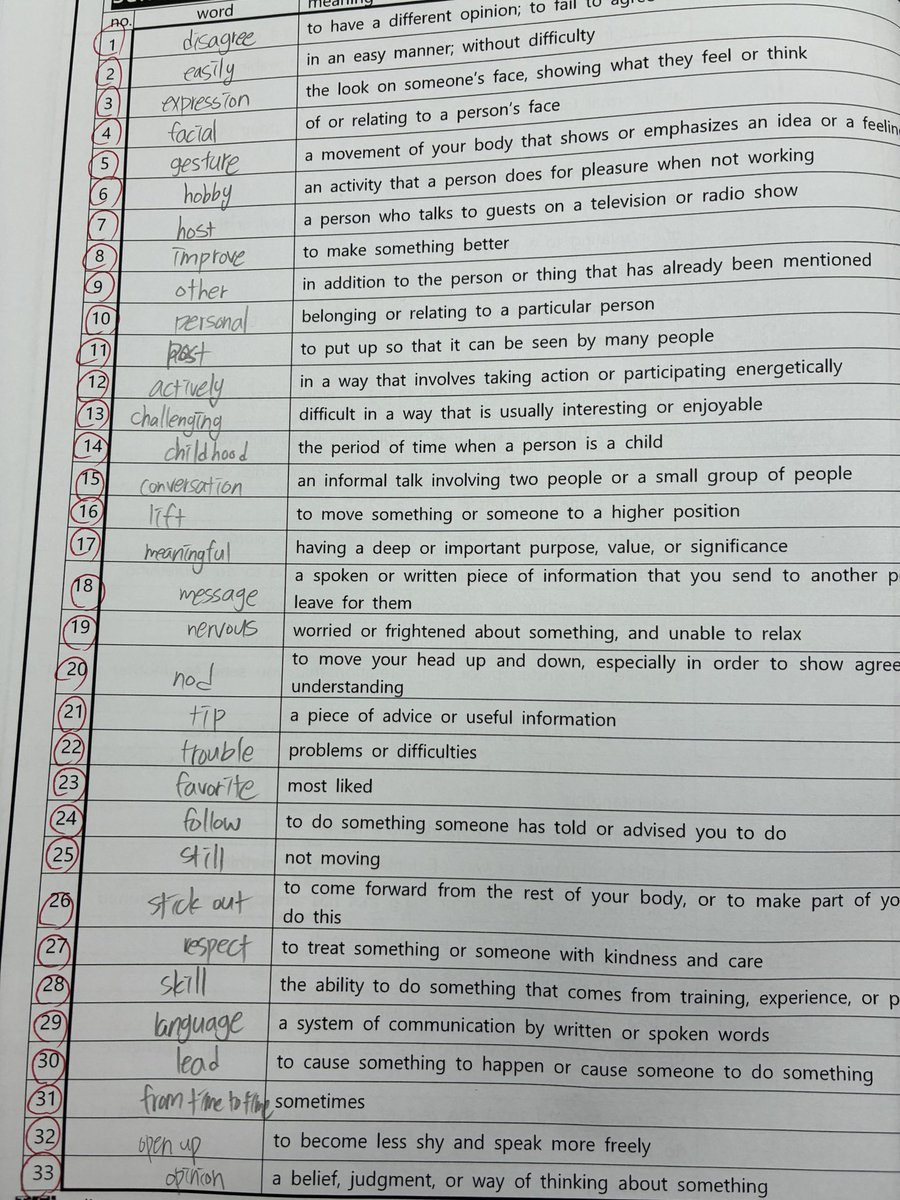 no. word meaning
1 disagree to have a different opinion; to fail to
2 easily in an easy manner; without difficulty
3 expression the look on someone's face, showing what they feel or think
4 facial of or relating to a person's face
5 gesture a movement of your body that shows or emphasizes an idea or a feelin
6 hobby an activity that a person does for pleasure when not working
7 host a person who talks to guests on a television or radio show
8 improve to make something better
9 other in addition to the person or thing that has already been mentioned
10 personal belonging or relating to a particular person
11 post to put up so that it can be seen by many people
12 actively in a way that involves taking action or participating energetically
13 challenging difficult in a way that is usually interesting or enjoyable
14 childhood the period of time when a person is a child
15 conversation an informal talk involving two people or a small group of people
16 lift to move something or someone to a higher position
17 meaningful having a deep or important purpose, value, or significance
18 message a spoken or written piece of information that you send to another p
leave for them
19 nervous worried or frightened about something, and unable to relax
20 nod to move your head up and down, especially in order to show agree
understanding
21 tip a piece of advice or useful information
22 trouble problems or difficulties
23 favorite most liked
24 follow to do something someone has told or advised you to do
25 still not moving
26 stick out to come forward from the rest of your body, or to make part of yo
do this
27 respect to treat something or someone with kindness and care
28 skill the ability to do something that comes from training, experience, or p
29 language a system of communication by written or spoken words
30 lead to cause something to happen or cause someone to do something
31 from time to time sometimes
32 open up to become less shy and speak more freely
33 opinion a belief, judgment, or way of thinking about something